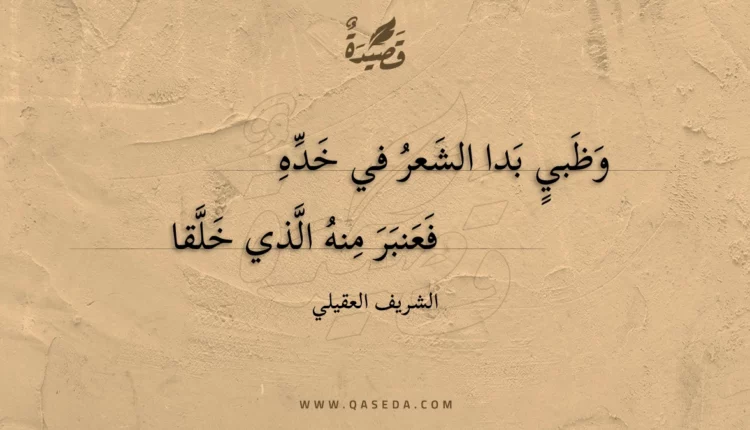 قَصِيدَةٌ
وَظَبيٍ بَدا الشَعرُ في خَدِّهِ
فَعَنبَرَ مِنهُ الَّذي خَلَّقا
الشريف العقيلي
WWW.QASEDA.COM